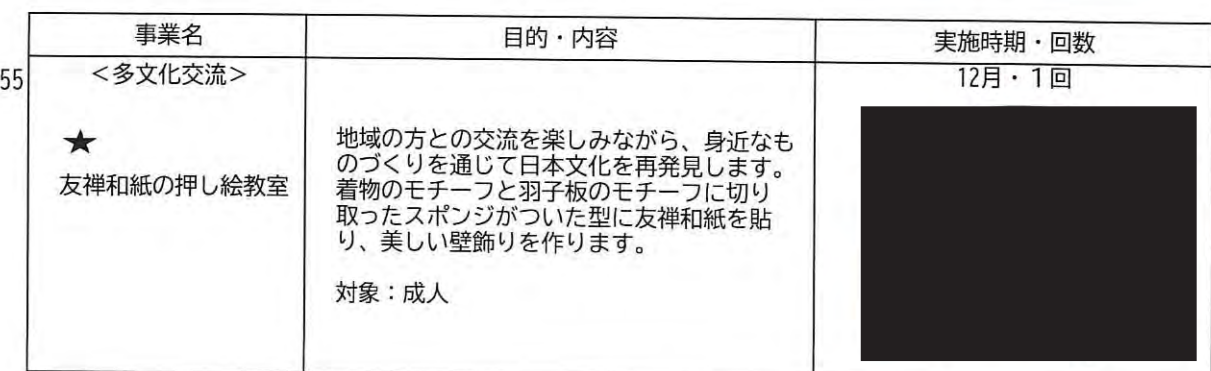 事業名
目的・内容
実施時期・回数
55
＜多文化交流＞
12月・１回
★
友禅和紙の押し絵教室
地域の方との交流を楽しみながら、身近なも
のづくりを通じて日本文化を再発見します。
着物のモチーフと羽子板のモチーフに切り
取ったスポンジがついた型に友禅和紙を貼
り、美しい壁飾りを作ります。
対象：成人